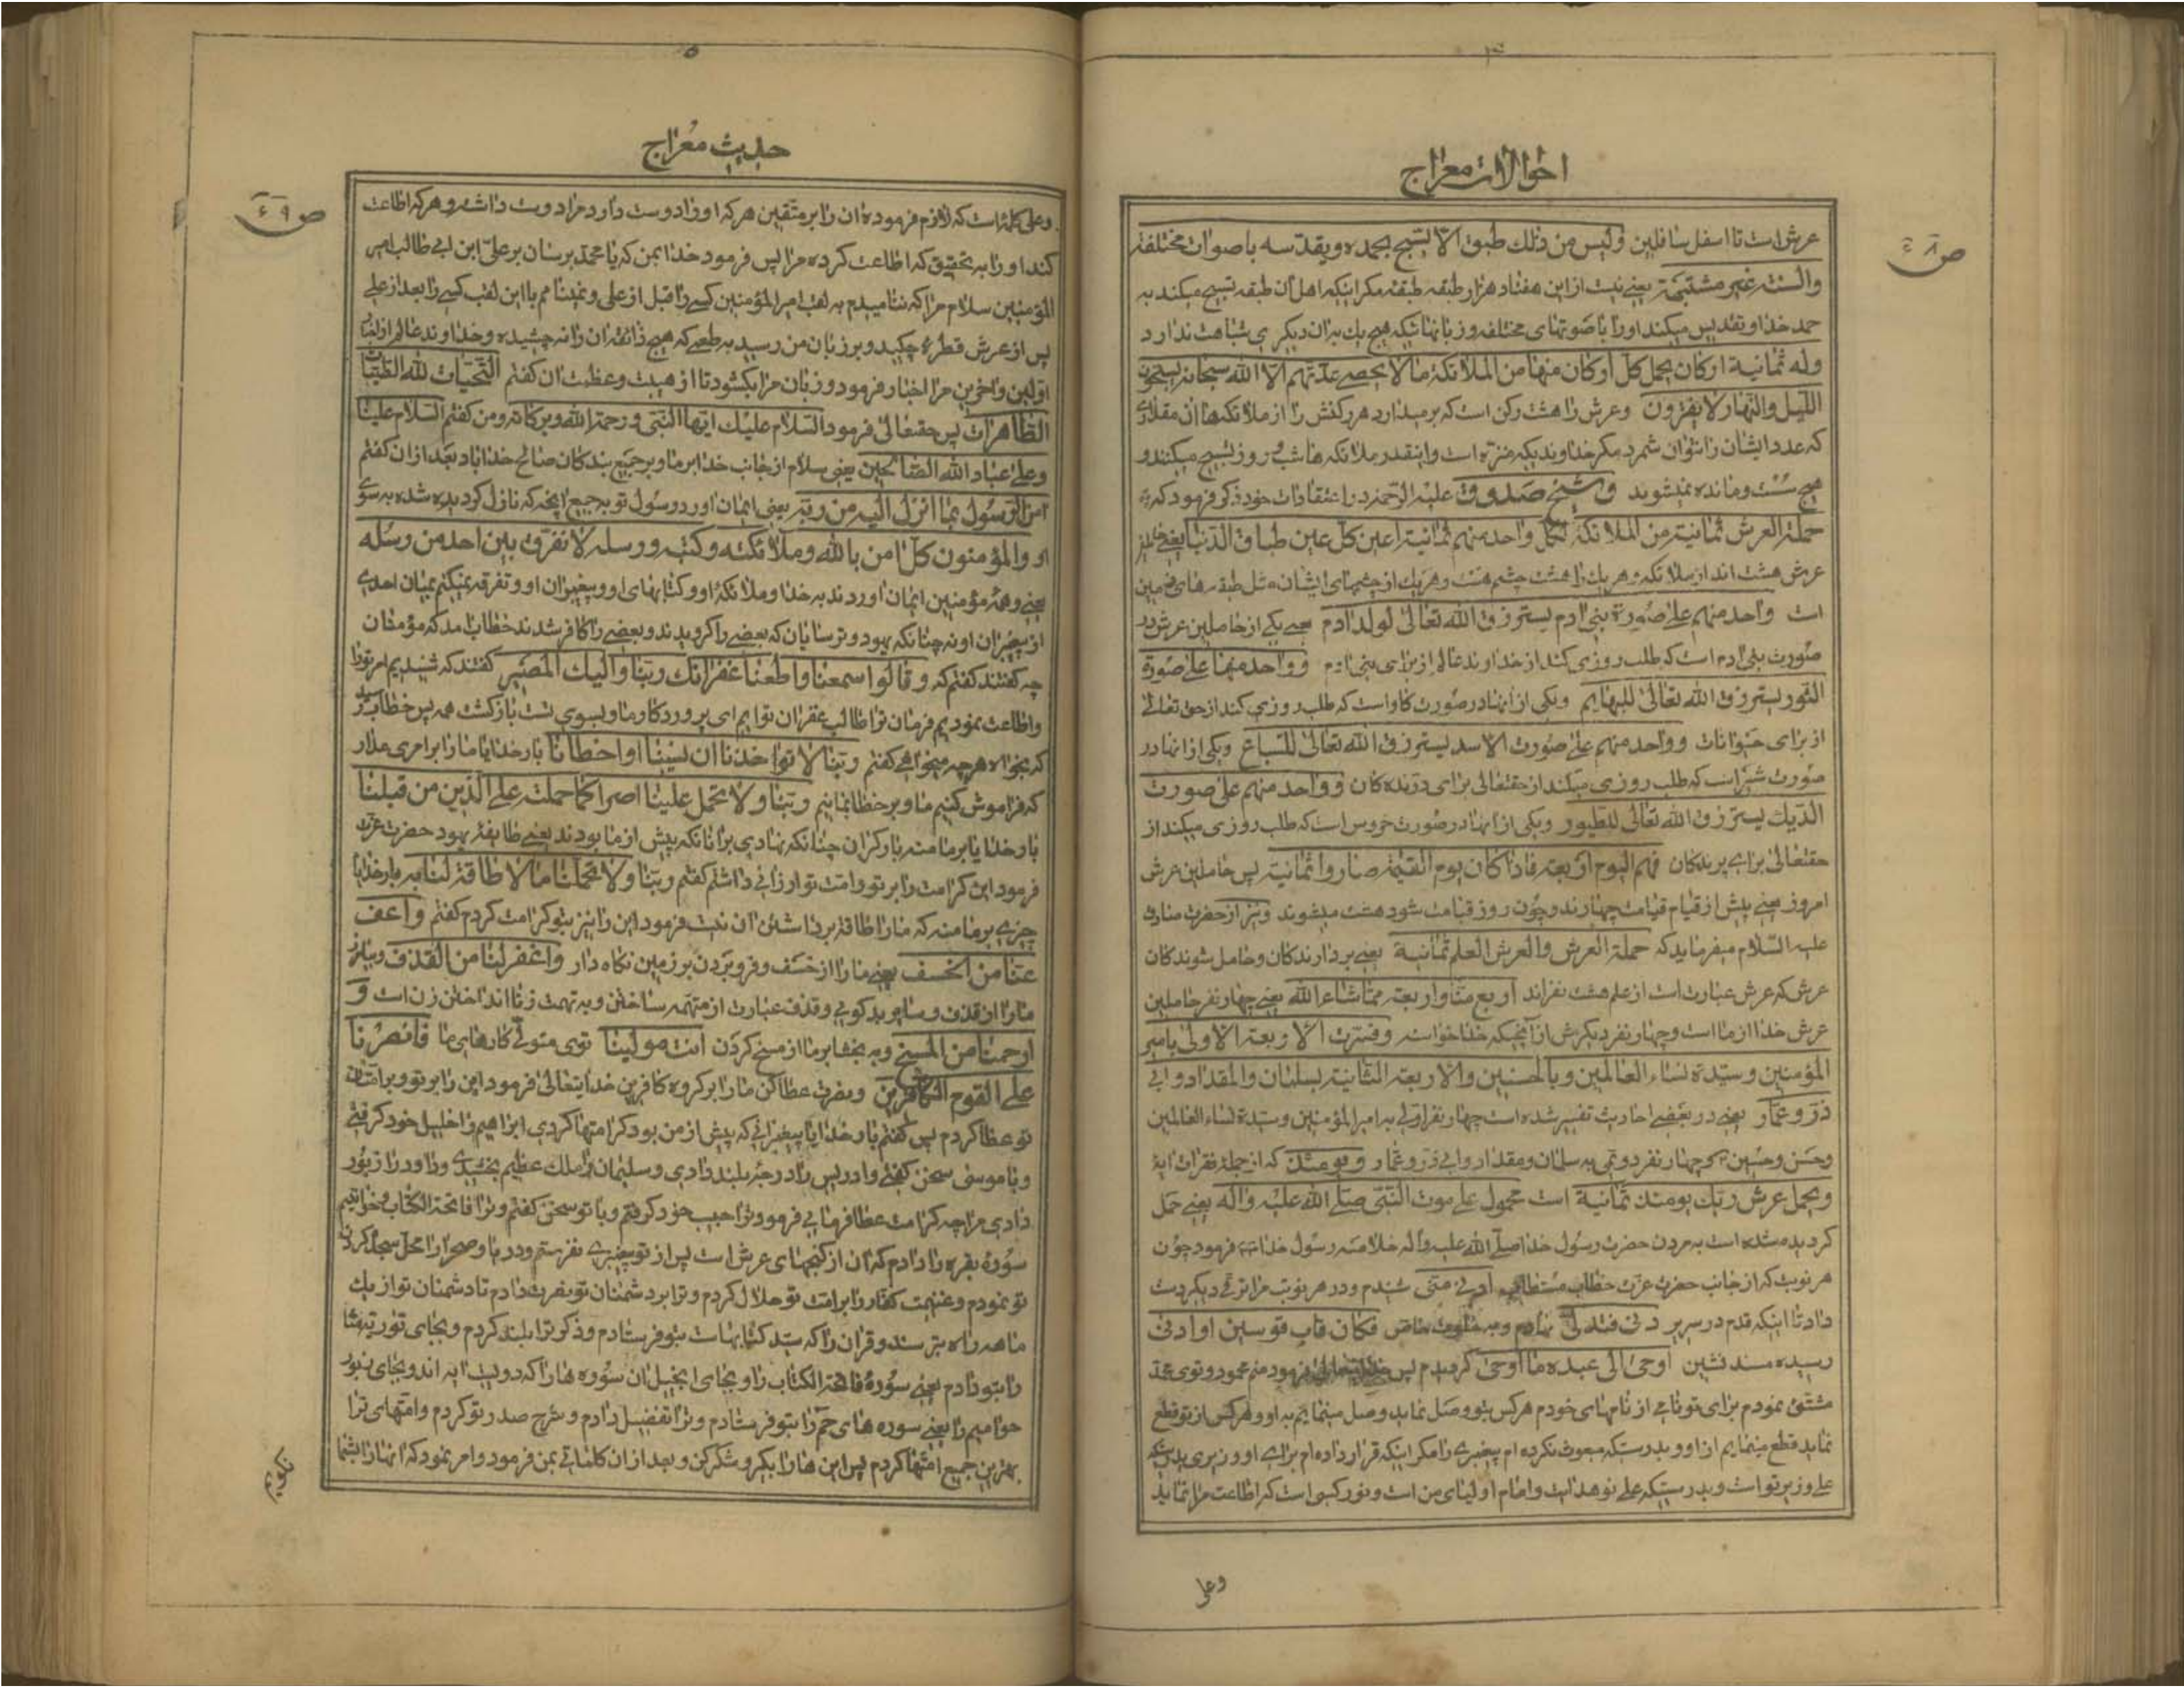 احوالات معراج
ص ٤٨
عرش است تا اسفل سافلین ولیس من ذلك طبق الا یسبح بحمده ویقدسه باصوات مختلفة
والسنة غیر مشتبهة یعنے نیست از این هفتاد هزار طبقه طبقهٔ مکر اینکه اهل آن طبقه تسبیح میکند به
حمد خدا و تقدیس میکند او را با صوتهای مختلفه و زبانهائیکه هیچ یك به ان دیکری شباهت ندارد
وله ثمانیة ارکان یحمل کل ارکان منها من الملائکة مالا یحصے عدتهم الا الله سبحانه یسبحون
اللیل والنهار لا یفترون وعرش را هشت رکن است که برمیدارد هر رکنش را از ملائکه ها ان مقداری
که عدد ایشان را نتوان شمرد مکر خداوندیکه منزه است و اینقدر ملائکه ها شب و روز تسبیح میکنند و
هیچ سست و مانده نمیشوند و شیخ صدوق علیه الرحمه در اعتقادات خود ذکر فرمود که
حملة العرش ثمانیة من الملائکة لکل واحد منهم ثمانیة اعین کل عین طباق الدنیا یعنے حاملین
عرش هشت اند از ملائکه و هر یك را هشت چشم هست و هر یك از چشمهای ایشان مثل طبقه های زمین
است واحد منهم علے صورة بنی ادم یسترزق الله تعالی لولد ادم یعنے یکے از حاملین عرش در
صورت بنی ادم است که طلب روزی کند از خداوند عالم از برای بنی ادم و واحد منها علے صورة
الثور یسترزق الله تعالی للبهایم ویکی از انها در صورت کاو است که طلب روزی کند از حق تعالی
از برای حیوانات و واحد منهم علے صورت الاسد یسترزق الله تعالی للسباع ویکی از انها در
صورت شیر است که طلب روزی میکند از حقتعالی برای درنده کان و واحد منهم علی صورت
الدیك یسترزق الله تعالی للطیور ویکی از انها در صورت خروس است که طلب روزی میکند از
حقتعالی برای پرندکان فهم الیوم اربعة فاذا کان یوم القیمة صاروا ثمانیة پس حاملین عرش
امروز یعنے پیش از قیام قیامت چهارند و چون روز قیامت شود هشت میشوند و نیز از حضرت صادق
علیه السلام میفرماید که حملة العرش والعرش العلم ثمانیة یعنے بردارندکان و حامل شوندکان
عرش که عرش عبارت است از علم هشت نفراند اربع منا و اربعة مما شاء الله یعنے چهار نفر حاملین
عرش خدا از ما است و چهار نفر دیکرش از آنچیکه خدا خواسته وفسرت الاربعة الاولی بامیر
المؤمنین وسیدة نساء العالمین وبالحسنین والاربعة الثانیة بسلمان والمقداد وابی
ذر وعمار یعنے در بعضے احادیث تفسیر شده است چهار نفر اولی به امیر المؤمنین وسیدة نساء العالمین
وحسن وحسین و چهار نفر دومی به سلمان و مقداد و ابی ذر و عمار و یومئذ که از جمله فقرات ایه
ویحمل عرش ربك یومئذ ثمانیة است محمول علے موت النبی صلے الله علیه واله یعنے حمل
کردیده شده است به مردن حضرت رسول خدا صلے الله علیه واله خلاصه رسول خدا فرمود چون
هر نوبت که از جانب حضرت عزت خطاب مستطاب ادن منی شنیدم و در هر نوبت مرا ترقی دیکر دست
داد تا اینکه قدم در سریر دنی فتدلی نهادم وبه خلوت خاص فکان قاب قوسین او ادنی
رسیده مسند نشین اوحی الی عبده ما اوحی کردیدم پس فرمود منم محمود و توی محمد
مشتق نمودم برای تو نامے از نامهای خودم هرکس بتو وصل نماید وصل مینمایم به او و هرکس از تو قطع
نماید قطع مینمایم از او و بدرستیکه مبعوث نکرده ام پیغمبرے را مکر اینکه قرار داده ام برای او وزیری بدرستیکه
علے وزیر تو است و بدرستیکه علے نور هدایت و امام اولیای من است و نور کسی است که اطاعت مرا نماید
وعلی
حدیث معراج
ص ٤٩
وعلی کلمهٔ است که لازم فرموده ان را بر متقین هرکه او را دوست دارد مرا دوست داشته و هرکه اطاعت
کند او را به تحقیق که اطاعت کرده مرا پس فرمود خدا بمن که یا محمد برسان بر علی ابن ابی طالب امیر
المؤمنین سلام مرا که ننامیدم به لقب امیر المؤمنین کسی را قبل از علی و نمینامم با این لقب کسی را بعد از علے
پس از عرش قطرهٔ چکید و بر زبان من رسید به طعمے که هیچ ذائقه ان را نه چشیده و خداوند عالم از اخبار
اولین و اخرین مرا اخبار فرمود و زبان مرا بکشود تا از هیبت و عظمت ان کفتم التحیات لله الطیبات
الطاهرات پس حقتعالی فرمود السلام علیك ایها النبی ورحمة الله وبرکاته ومن کفتم السلام علینا
وعلے عباد الله الصالحین یعنی سلام از جانب خدا بر ما و بر جمیع بندکان صالح خدا باد بعد از ان کفتم
امن الرسول بما انزل الیه من ربه یعنی ایمان اورد رسول تو بجمیع انچه که نازل کردیده شده به سوی
او والمؤمنون کل امن بالله وملائکته وکتبه ورسله لا نفرق بین احد من رسله
یعنے و همه مؤمنین ایمان اوردند به خدا و ملائکه او و کتابهای او و پیغمبران او و تفرقه نمیکنیم بمیان احدی
از پیغمبران او نه چنانکه یهود و ترسایان که بعضے را کرویدند و بعضے را کافر شدند خطاب امد که مؤمنان
چه کفتند کفتم که وقالوا سمعنا واطعنا غفرانك ربنا والیك المصیر کفتند که شنیدیم امر تو را
واطاعت نمودیم فرمان تو را طالب غفران توایم ای پروردکار ما و بسوی تست بازکشت همه پس خطاب رسید
که بخواه هرچه میخواهی کفتم ربنا لا تواخذنا ان نسینا او اخطانا بار خدایا ما را بر امری مدار
که فراموش کنیم ما و بر خطا بمانیم ربنا ولا تحمل علینا اصرا کما حملته علے الذین من قبلنا
بار خدایا بر ما منه بار کران چنانکه نهادی بر انانکه پیش از ما بودند یعنے طایفهٔ یهود حضرت عزت
فرمود این کرامت را بر تو و امت تو ارزانی داشتم کفتم ربنا ولا تحملنا مالا طاقة لنا به بار خدایا
چیزی بر ما منه که ما را طاقة برداشتن ان نیست فرمود این را نیز بتو کرامت کردم کفتم واعف
عنا من الخسف یعنے ما را از خسف و فرو بردن بر زمین نکاه دار واغفر لنا من القذف وبیامرز
ما را از قذف و سایر بدکویی و قذف عبارت از متهمه ساختن و به تهمت زنا انداختن زن است و
ارحمنا من المسخ وبه بخشا بر ما از مسخ کردن انت مولینا توی متولی کارهای ما فانصرنا
علے القوم الکافرین ونصرت عطا کن ما را بر کروه کافرین خدایتعالی فرمود این را بر تو و بر امتان
تو عطا کردم پس کفتم بار خدایا پیغمبرانی که پیش از من بود کرامتها کردی ابراهیم را خلیل خود کرفتی
وبا موسی سخن کفتی و ادریس را درجهٔ بلند دادی و سلیمان را ملك عظیم بخشیدی و داود را زبور
دادی مرا چه کرامت عطا فرمایی فرمود ترا حبیب خود کرفتم و با تو سخن کفتم و ترا فاتحة الکتاب و خواتیم
سورهٔ بقره را دادم که ان از کنجهای عرش است پس از تو پیغمبرے نفرستم و دریا و صحرا را محل سجدهٔ کردن
تو نمودم و غنیمت کفار را بر امت تو حلال کردم و ترا بر دشمنان تو نصرت دادم تا دشمنان تو از یك
ماهه راه بترسند و قران را که سید کتابهاست بتو فرستادم و ذکر ترا بلند کردم و بجای توریة مثانی
را بتو دادم یعنے سورهٔ فاتحة الکتاب را و بجای انجیل ان سوره ها را که دویست ایه اند و بجای زبور
حوامیم را یعنے سوره های حم را بتو فرستادم و ترا تفضیل دادم و شرح صدر تو کردم و امتهای ترا
بهترین جمیع امتها کردم پس این ها را بکیر و شکر کن و بعد از ان کلماتی بمن فرمود و امر نمود که انها را بشما
نکویم